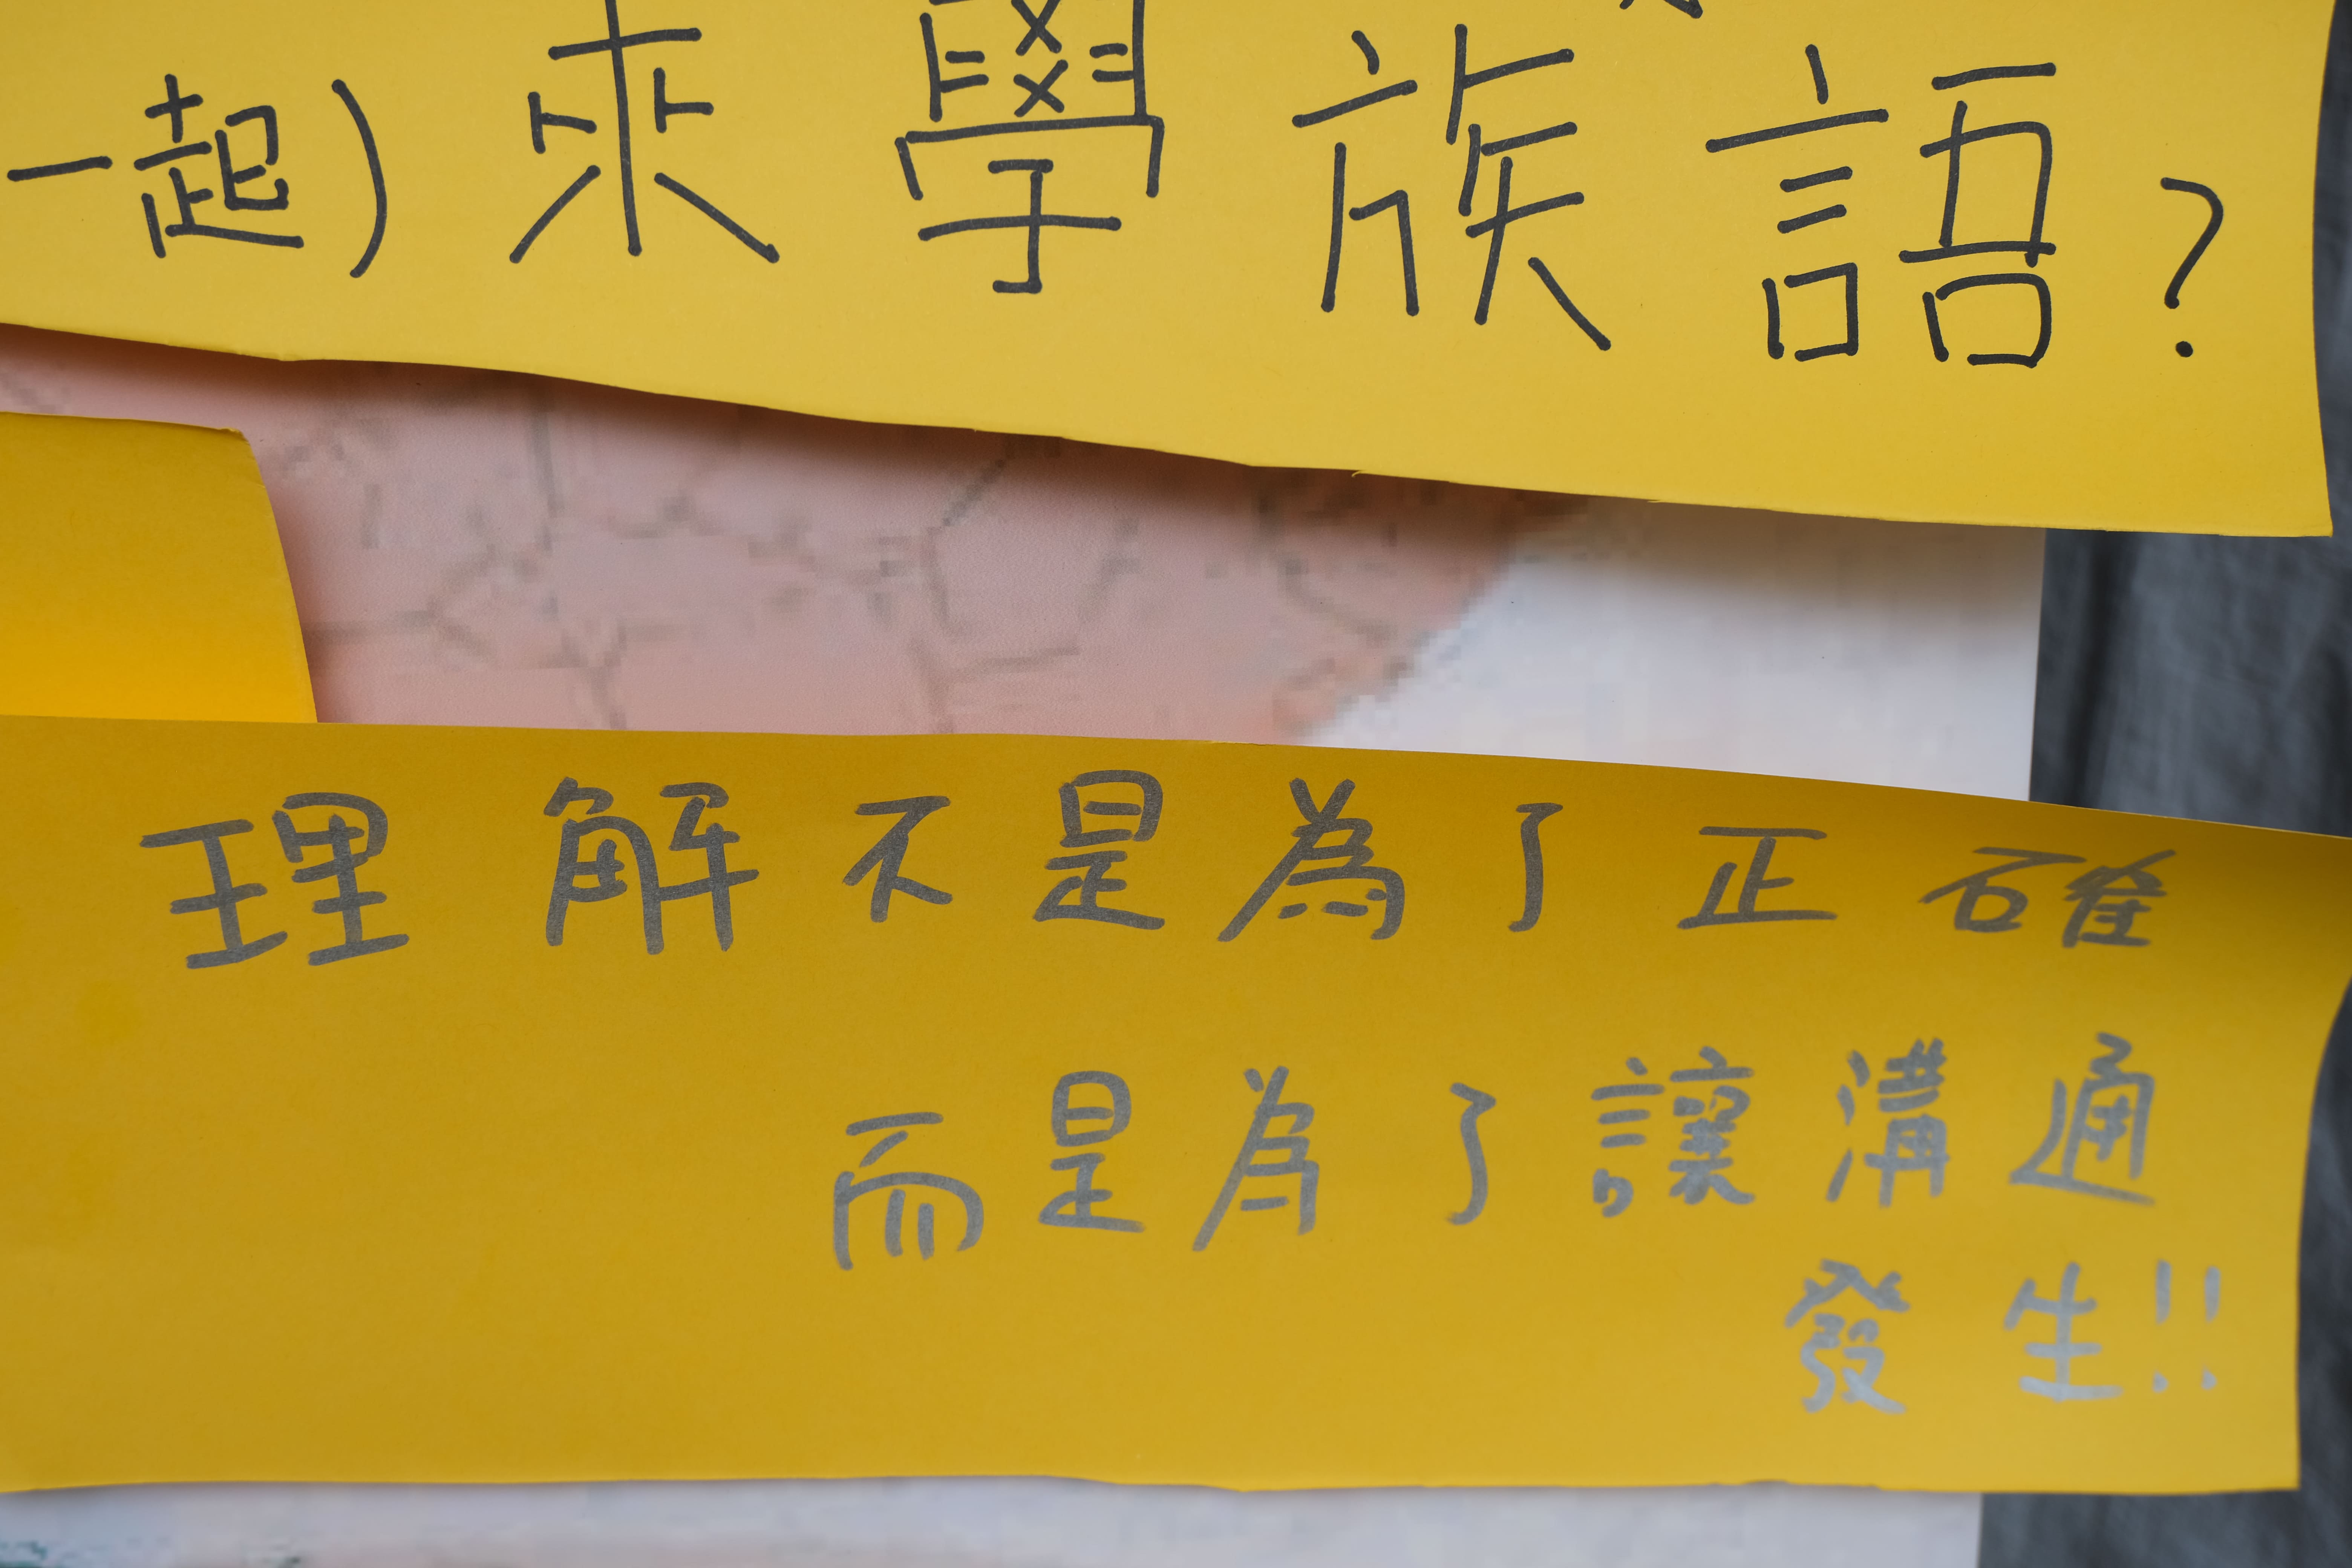 一起)來學族語?
理解不是為了正確
而是為了讓溝通
發生!!